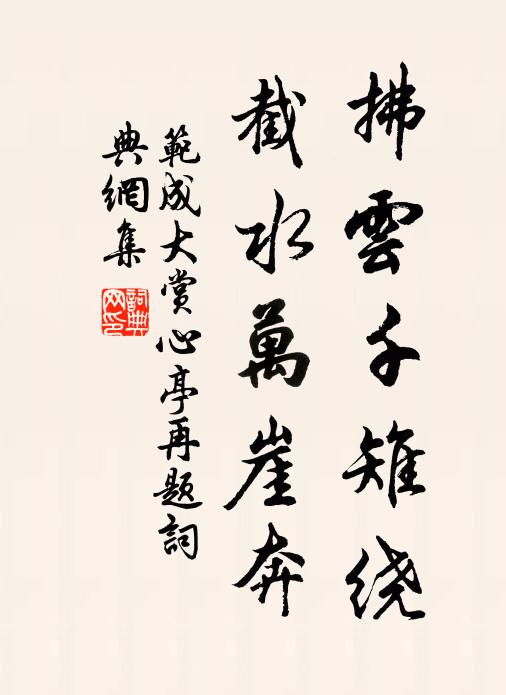 拂雲千雉繞
截水萬崖奔
範成大賞心亭再題詞
典網集
詞典網印